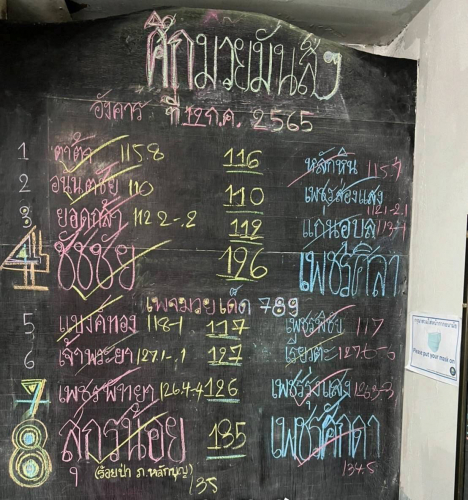 ศึกมวยมันส์ๆ
อังคาร ที่ 12 ก.ค. 2565
1 ตาต้า 115.8 116 หลักหิน 115.7
2 อนันตชัย 110 110 เพชรส่องแสง 112.1-2.1
3 ยอดกล้า 112.2-.2 112 แก่นอุบล
4 ชัชชัย 126 เพชรศิลา
เพชรมวยเด็ด 789
5 แบงค์ทอง 118-1 117 เพชรพิชัย 117
6 เจ้าพระยา 127.1-.1 127 เรียวตะ
7 เพชรพิทยา 126.4-.4 126 เพชรรุ่งแสง
8 สุกรน้อย 135 135 เพชรศักดา
(ร้อยป่า ภ.หลักบุญ)
Please put your mask on